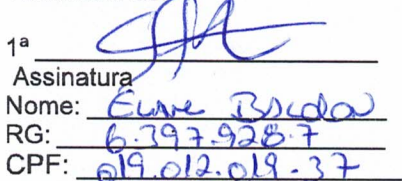 1ª
Assinatura
Nome:
RG: 6.397.928-7
CPF: 019.012.019-37